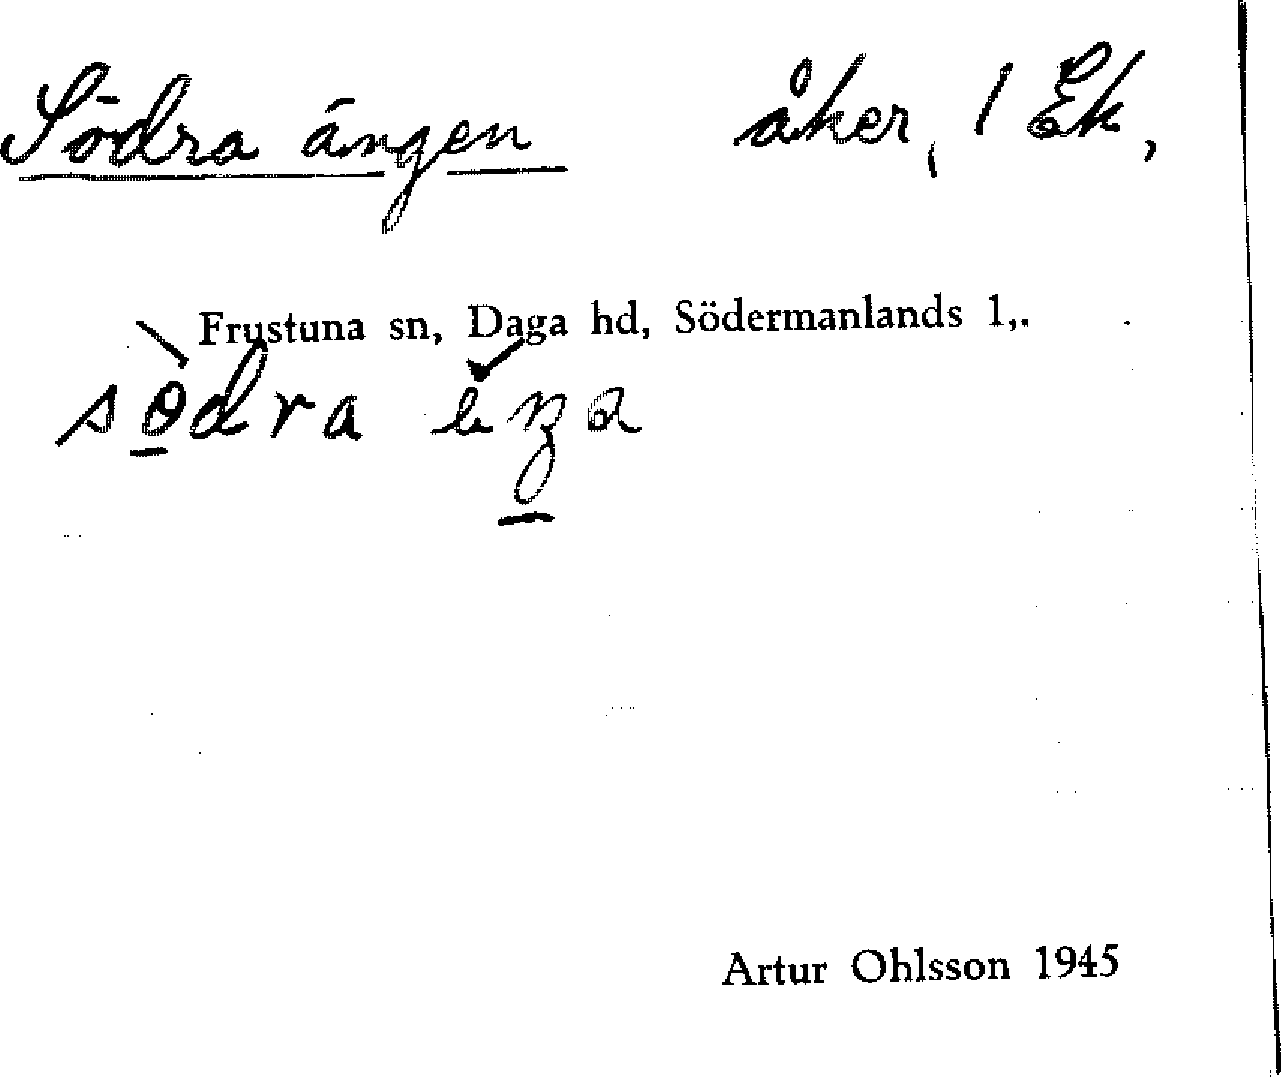 Södra ängen åker, 1 Ek,
Frustuna sn, Daga hd, Södermanlands l,.
södra
Artur Ohlsson 1945